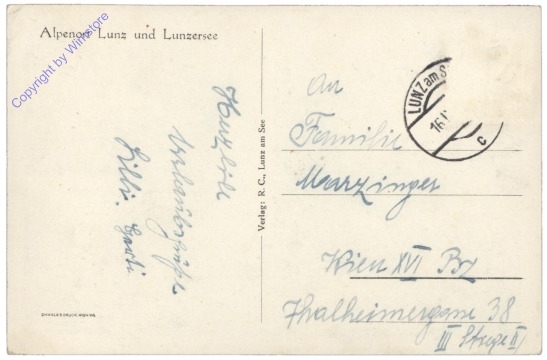 Alpenort Lunz und Lunzersee
Copyright by Winstore
Herzliche
Urlaubsgrüße
Lilli.
Verlag: R. C., Lunz am See
LUNZ am S
16.
c
An
Familie
Marzinger
Wien XVI Bz
Thalheimergasse 38
III Stiege